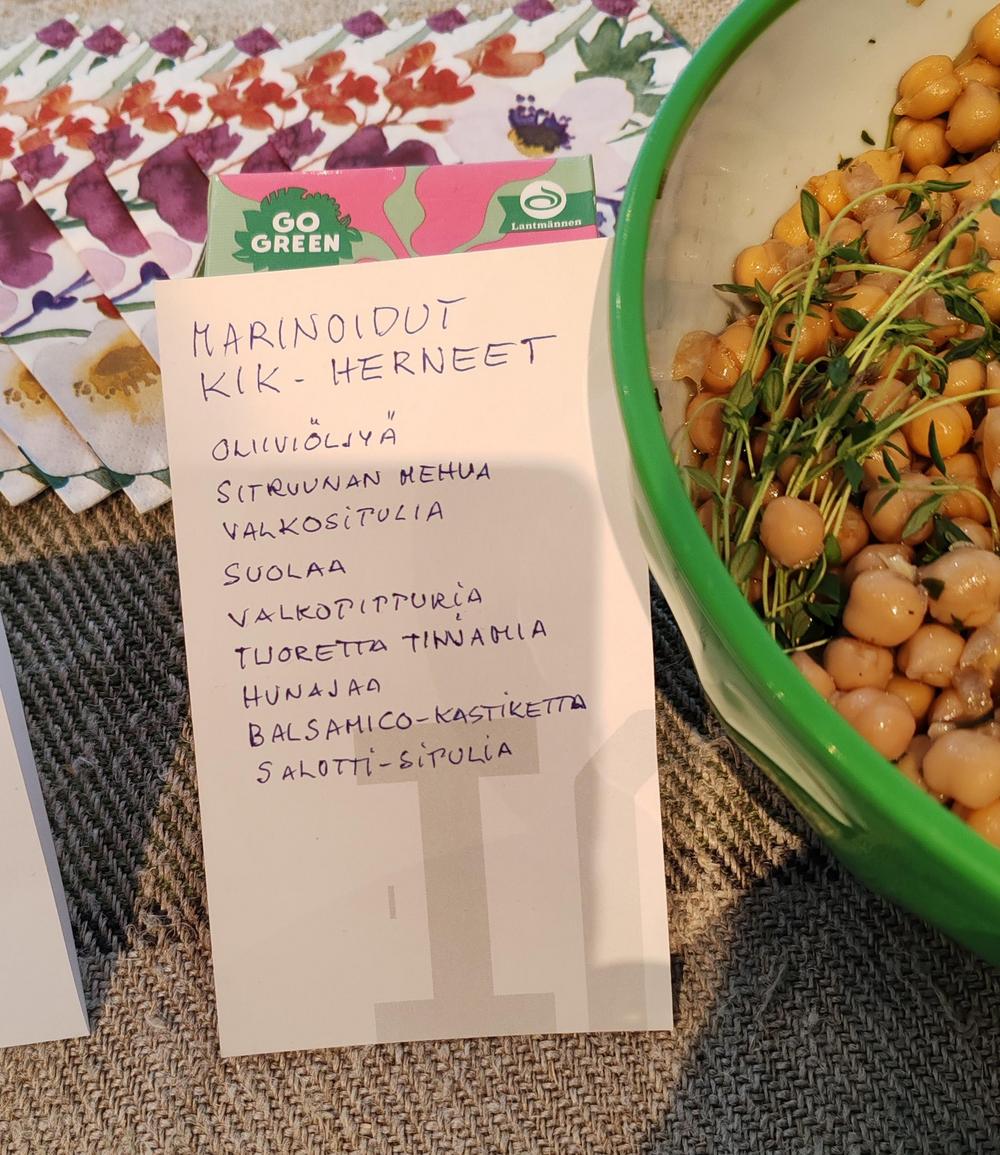 GO
GREEN
Lantmännen
MARINOIDUT
KIK-HERNEET
OLIIVIÖLJYÄ
SITRUUNAN MEHUA
VALKOSIPULIA
SUOLAA
VALKOPIPPURIA
TUORETTA TIMJAMIA
HUNAJAA
BALSAMICO-KASTIKETTA
SALOTTI-SIPULIA